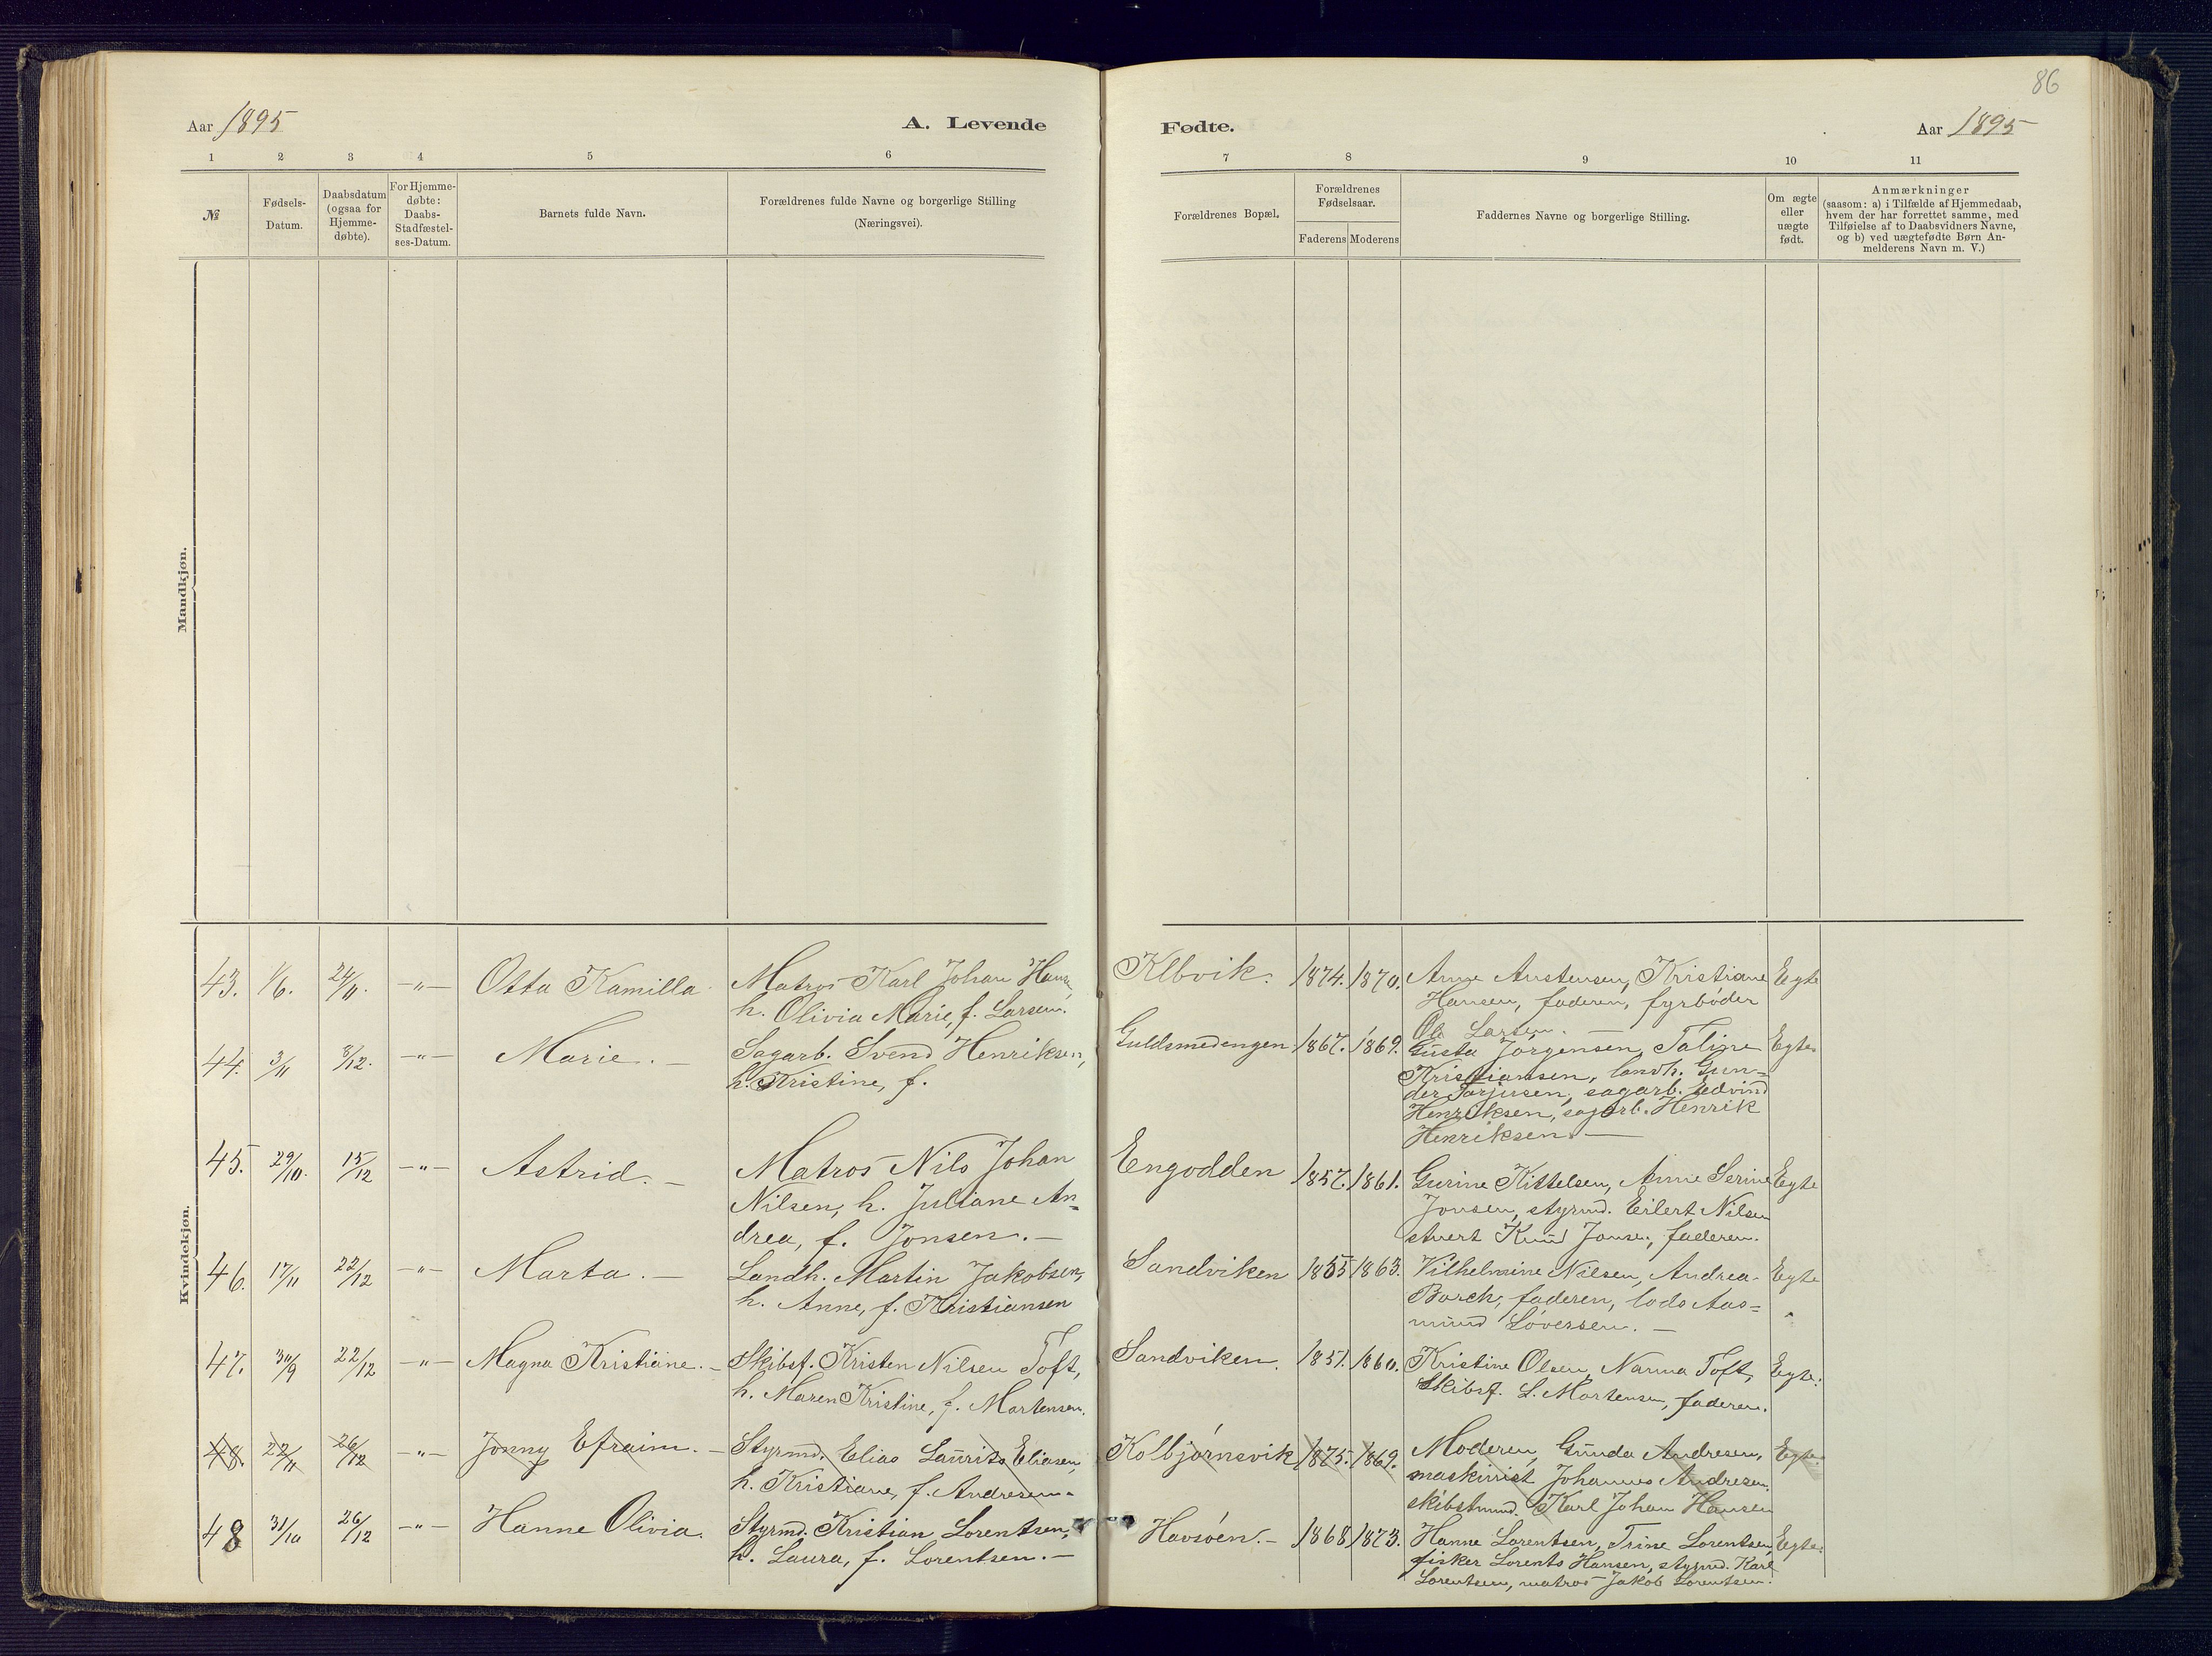 86
Aar 1895
A. Levende
Fødte.
Aar 1895
1 2 3 4 5 6 7 8 9 10 11
№
Fødsels-
Datum.
Daabsdatum
(ogsaa for
Hjemme-
døbte).
For Hjemme-
døbte:
Daabs-
Stadfæstel-
ses-Datum.
Barnets fulde Navn.
Forældrenes fulde Navne og borgerlige Stilling
(Næringsvei).
Forældrenes Bopæl.
Forældrenes
Fødselsaar.
Faderens Moderens
Faddernes Navne og borgerlige Stilling.
Om ægte
eller
uægte
født.
Anmærkninger
(saasom: a) i Tilfælde af Hjemmedaab,
hvem der har forrettet samme, med
Tilføielse af to Daabsvidners Navne,
og b) ved uægtefødte Børn An-
melderens Navn m. V.)
Mandkjøn.
Kvindekjøn.
43. 1/6. 24/11. —"— Otta Kamilla.
Matros Karl Johan Hans
h. Olivia Marie, f. Larsen.
Klbvik. 1874. 1870.
Anne Austensen, Kristiane
Hansen, faderen, fyrbøder
Ole Larsen. —
Egte
44. 3/11 8/12. —"— Marie. —
Sagarb. Svend Henriksen,
h. Kristine, f.
Guldsmedengen 1867. 1869.
Gusta Jørgensen, Taline
Kristiansen, landh. Gun=
der Tarjusen, sagarb. Edvind
Henriksen, sagarb. Henrik
Henriksen. —
Egte.
45. 29/10. 15/12 —"— Astrid. —
Matros Nils Johan
Nilsen, h. Juliane An=
drea, f. Jonsen. —
Engodden 1857. 1861.
Gurine Kittelsen, Anne Serine
Jonsen, styrmd. Eilert Nilsen
stuert Knud Jonse., faderen.
Egte
46. 17/11 22/12 —"— Marta. —
Landh. Martin Jakobsen,
h. Anne, f. Kristiansen
Sandviken 1855 1863.
Vilhelmine Nilsen, Andrea
Borch, faderen, lods Aas=
mund Søversen. —
Egte
47. 30/9 22/12 —"— Magna Kristiane. —
Skibsf. Kristen Nilsen Toft,
h. Maren Kristine, f. Mortensen.
Sandviken. 1851. 1860.
Kristine Olsen, Nanna Toft,
Skibsf. L. Mortensen, faderen.
Egte.
48. 22/11 26/12 —"— Jonny Efraim. —
Styrmd. Elias Laurits Eliasen,
h. Kristiane, f. Andresen.
Kolbjørnsvik 1875. 1869.
Moderen, Gunda Andresen,
maskinist Johannes Andresen,
skibstmmd. Karl Johan Hansen
Egte.
48 31/10 26/12 —"— Hanne Olivia.
Styrmd. Kristian Lorentsen,
h. Laura, f. Lorentsen. —
Havsøen. — 1868 1873.
Hanne Lorentsen, Trine Lorentsen,
fisker Lorents Hansen, styrmd. Karl
Lorentsen, matros Jakob Lorentsen.
Egte.